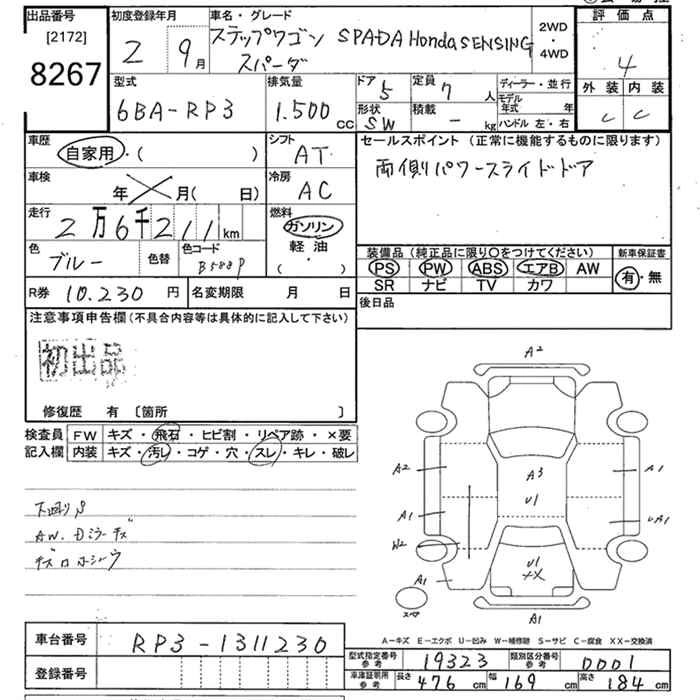 出品番号
[2172]
8267
初度登録年月
2 9月
車名・グレード
ステップワゴン SPADA Honda SENSING
スパーダ
2WD
・
4WD
評価点
4
外装 内装
C C
型式
6BA-RP3
排気量
1.500 CC
ドア
5
定員
7 人
形状
SW
積載
- kg
ディーラー・並行
モデル年式 年
ハンドル 左・右
車歴
自家用・( )
シフト
AT
セールスポイント (正常に機能するものに限ります)
両側パワースライドドア
車検
年 月( 日)
冷房
AC
走行
2万6千211 km
燃料
ガソリン
軽油
( ・ )
色
ブルー
色替
色コード
B588P
装備品 (純正品に限り○をつけてください)
PS PW ABS エアB AW
SR ナビ TV カワ
新車保証書
有・無
R券 10.230 円
名変期限 月 日
後日品
注意事項申告欄 (不具合内容等は具体的に記入して下さい)
初出品
修復歴 有 〔箇所 〕
検査員
記入欄
FW キズ・飛石・ヒビ割・リペア跡・×要
内装 キズ・汚レ・コゲ・穴・スレ・キレ・破レ
下廻りS
AW. Dミラーキズ
A2
A2
A3
A1
A1
U1
UA1
W2
U1
A1
スペア
A1
A-キズ E-エクボ U-凹み W-補修跡 S-サビ C-腐食 XX-交換済
車台番号 RP3-1311230
登録番号
型式指定番号
参考
19323
類別区分番号
参考
0001
車庫証明用
参考
長さ 476 cm 幅 169 cm 高さ 184 cm